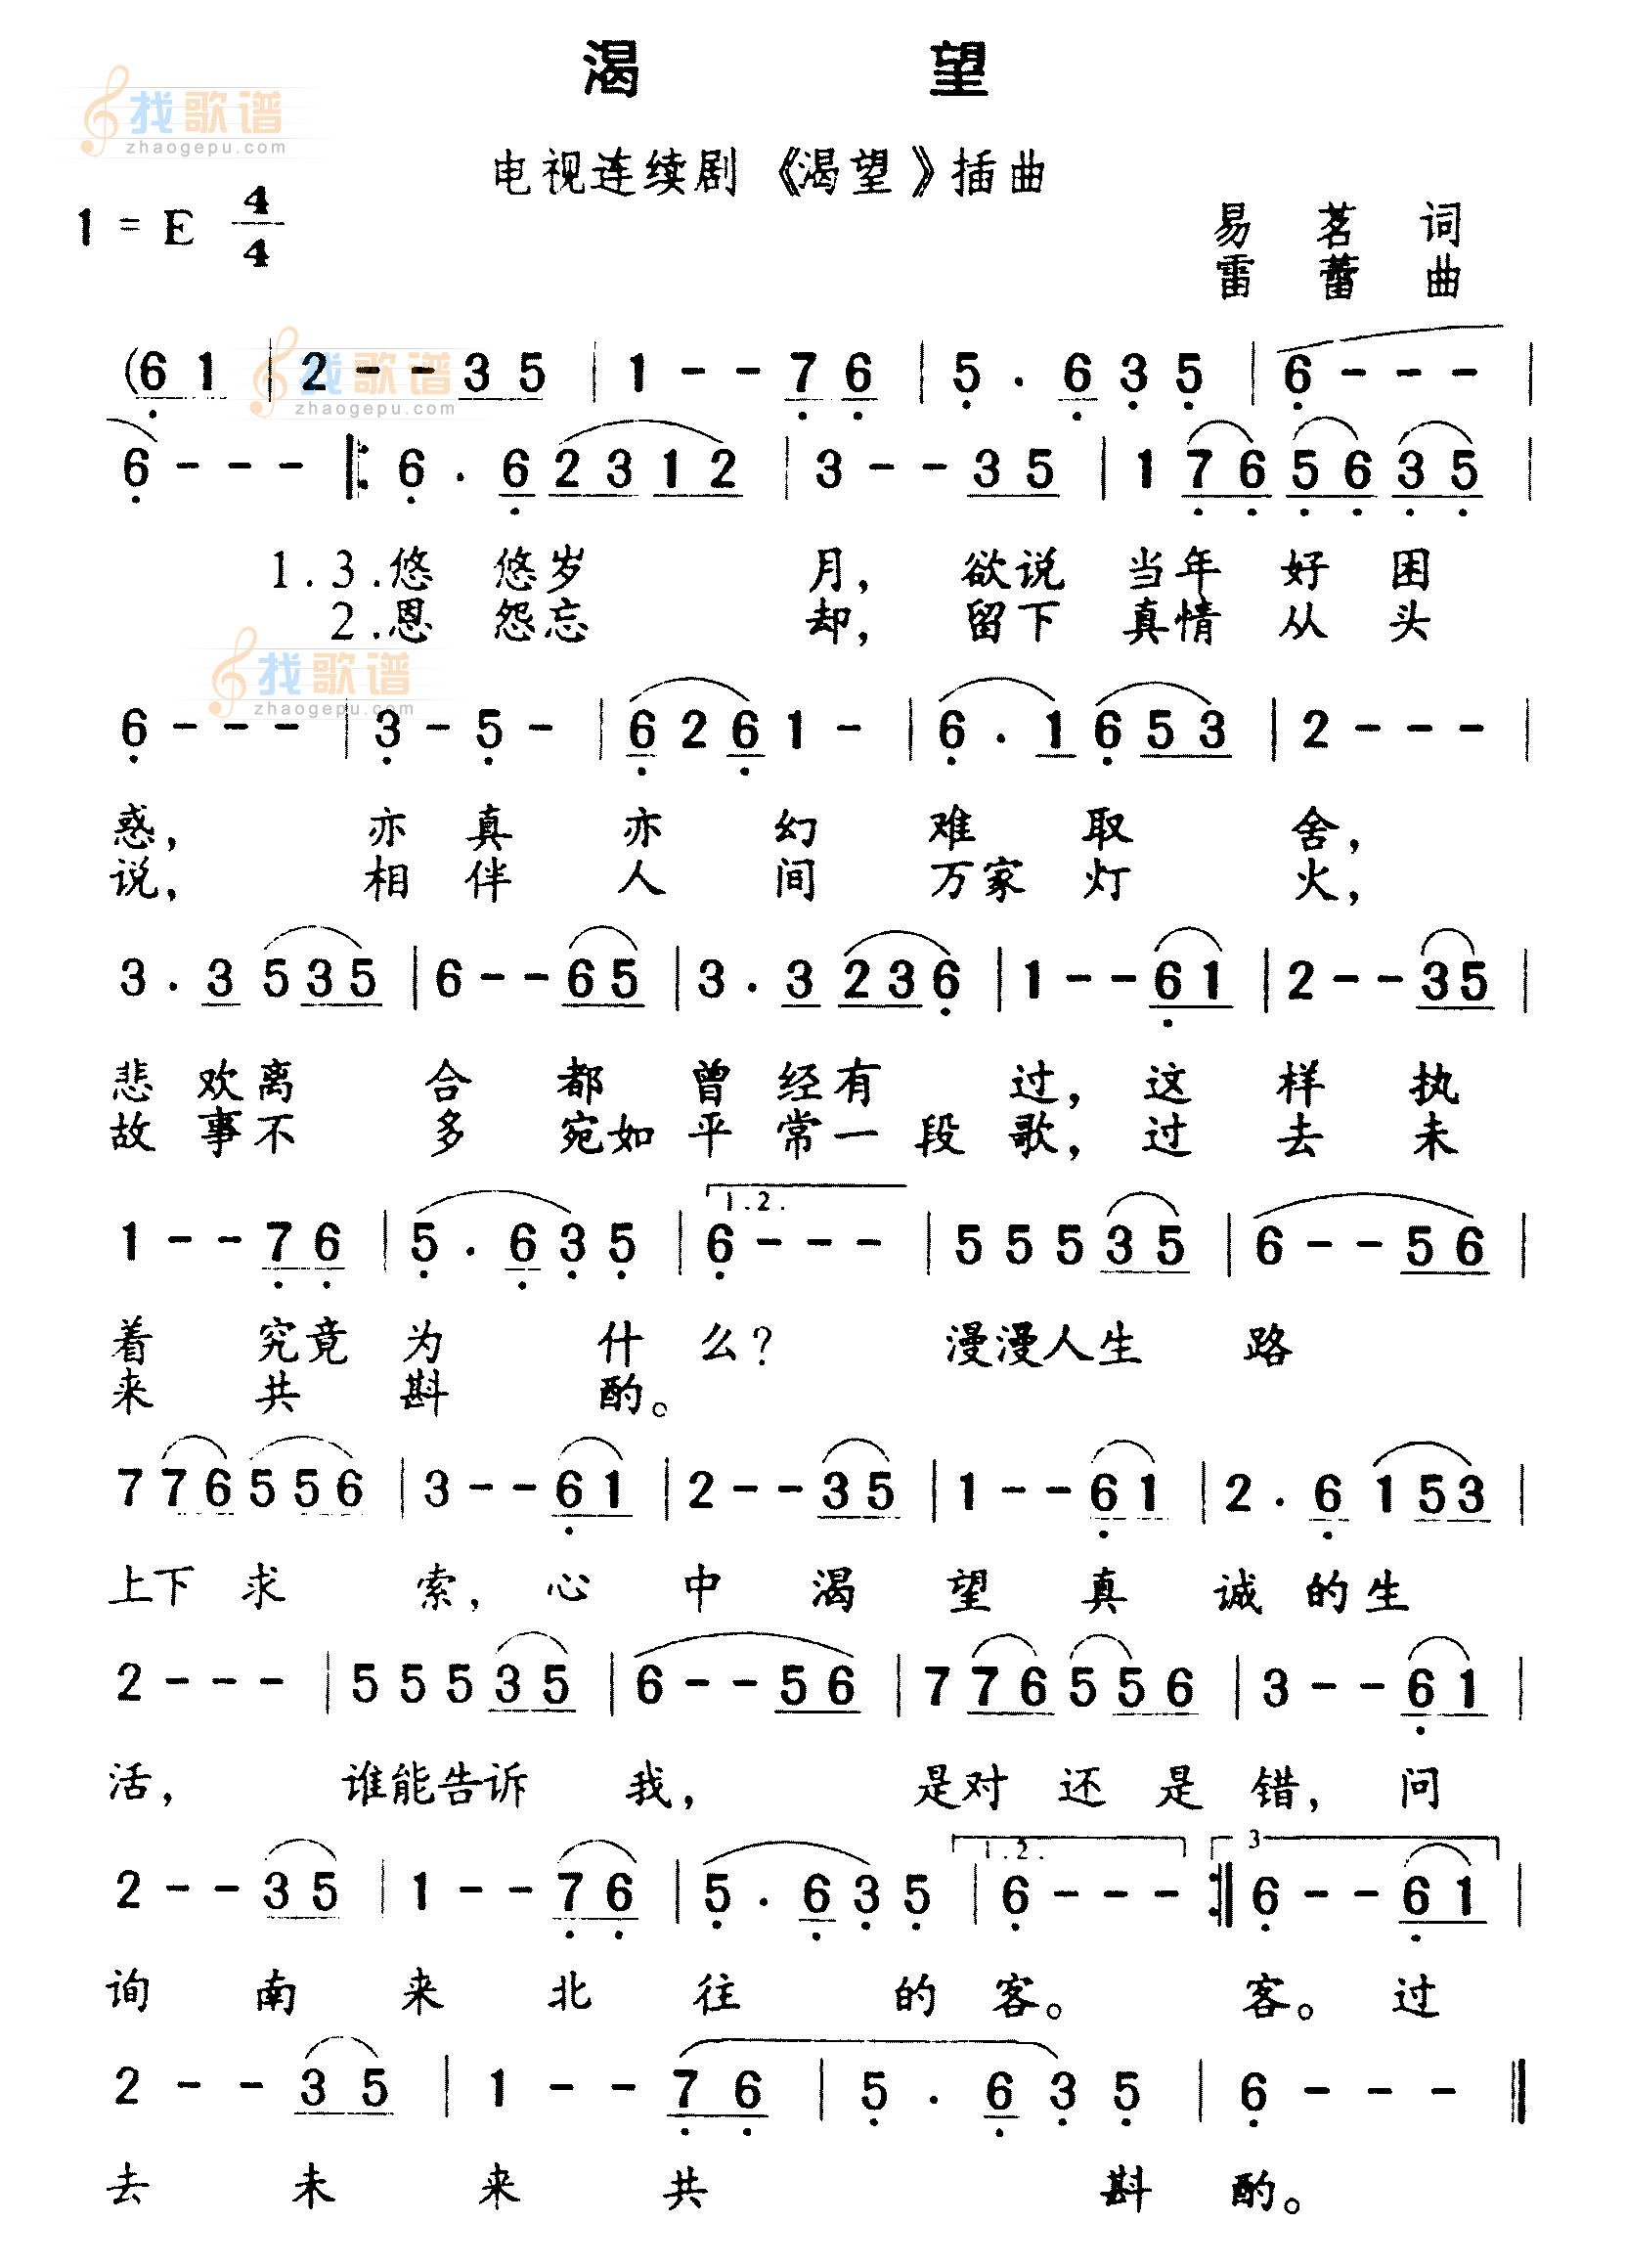 渴 望
找歌谱
zhaogepu.com
电视连续剧《渴望》插曲
1 = E 4/4
易 茗 词
雷 蕾 曲
(6 1 | 2 - - 3 5 | 1 - - 7 6 | 5 . 6 3 5 | 6 - - - |
找歌谱
zhaogepu.com
6 - - - |: 6 . 6 2 3 1 2 | 3 - - 3 5 | 1 7 6 5 6 3 5 |
1.3.悠 悠岁 月, 欲说 当年 好 困
2.恩 怨忘 却, 留下 真情 从 头
找歌谱
zhaogepu.com
6 - - - | 3 - 5 - | 6 2 6 1 - | 6 . 1 6 5 3 | 2 - - - |
惑, 亦 真 亦 幻 难 取 舍,
说, 相 伴 人 间 万家 灯 火,
3 . 3 5 3 5 | 6 - - 6 5 | 3 . 3 2 3 6 | 1 - - 6 1 | 2 - - 3 5 |
悲 欢离 合 都 曾 经有 过, 这 样 执
故 事不 多 宛如 平 常一 段 歌, 过 去 未
1 - - 7 6 | 5 . 6 3 5 | 1.2. 6 - - - | 5 5 5 3 5 | 6 - - 5 6 |
着 究竟 为 什 么? 漫漫人生 路
来 共 斟 酌。
7 7 6 5 5 6 | 3 - - 6 1 | 2 - - 3 5 | 1 - - 6 1 | 2 . 6 1 5 3 |
上下 求 索, 心 中 渴 望 真 诚 的生
2 - - - | 5 5 5 3 5 | 6 - - 5 6 | 7 7 6 5 5 6 | 3 - - 6 1 |
活, 谁能告诉 我, 是对 还 是 错, 问
2 - - 3 5 | 1 - - 7 6 | 5 . 6 3 5 | 1.2. 6 - - - :| 3 6 - - 6 1 |
询 南 来 北 往 的 客。 客。 过
2 - - 3 5 | 1 - - 7 6 | 5 . 6 3 5 | 6 - - - ‖
去 未 来 共 斟 酌。